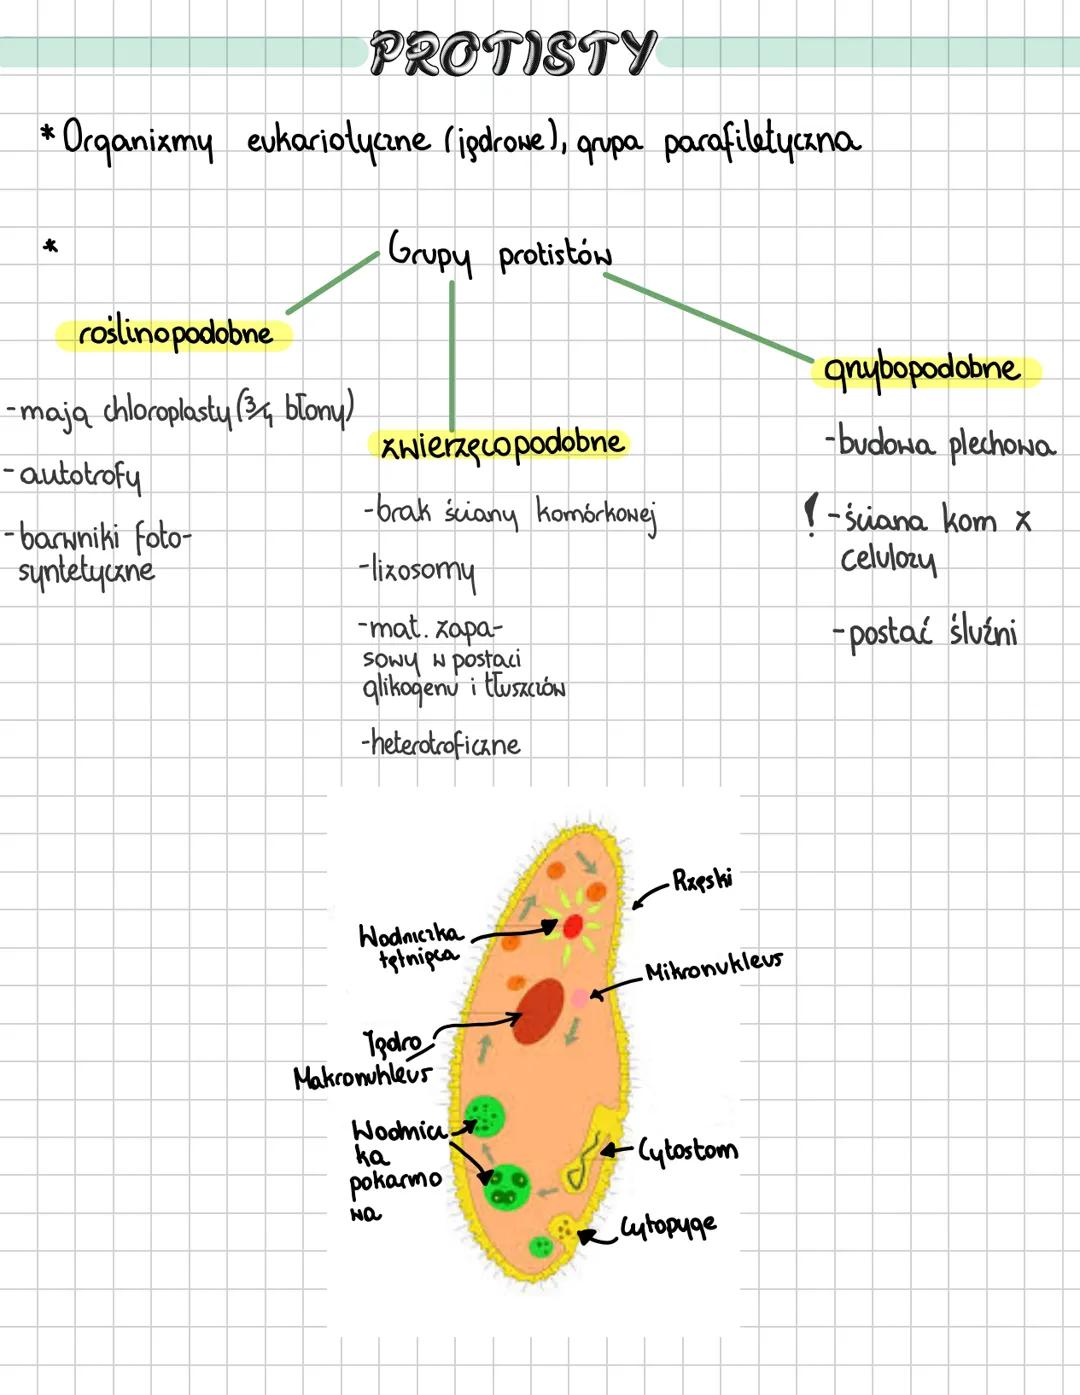 PROTISTY
* Organizmy eukariotyczne (jądrowe), grupa parafiletyczna
*
Grupy protistów
roślinopodobne
-mają chloroplasty (3/4 błony)
-autotrofy
-barwniki foto-
syntetyczne
zwierzęcopodobne
-brak ściany komórkowej
-lizosomy
-mat. zapa-
sowy w postaci
glikogenu i tłuszczów
-heterotroficzne
grzybopodobne
-budowa plechowa
! -ściana kom z
celulozy
-postać śluźni
Rzęski
Wodniczka
tętniąca
Mikronukleus
Jądro
Makronukleus
Wodnicz
ka
pokarmo
wa
Cytostom
Cytopyge